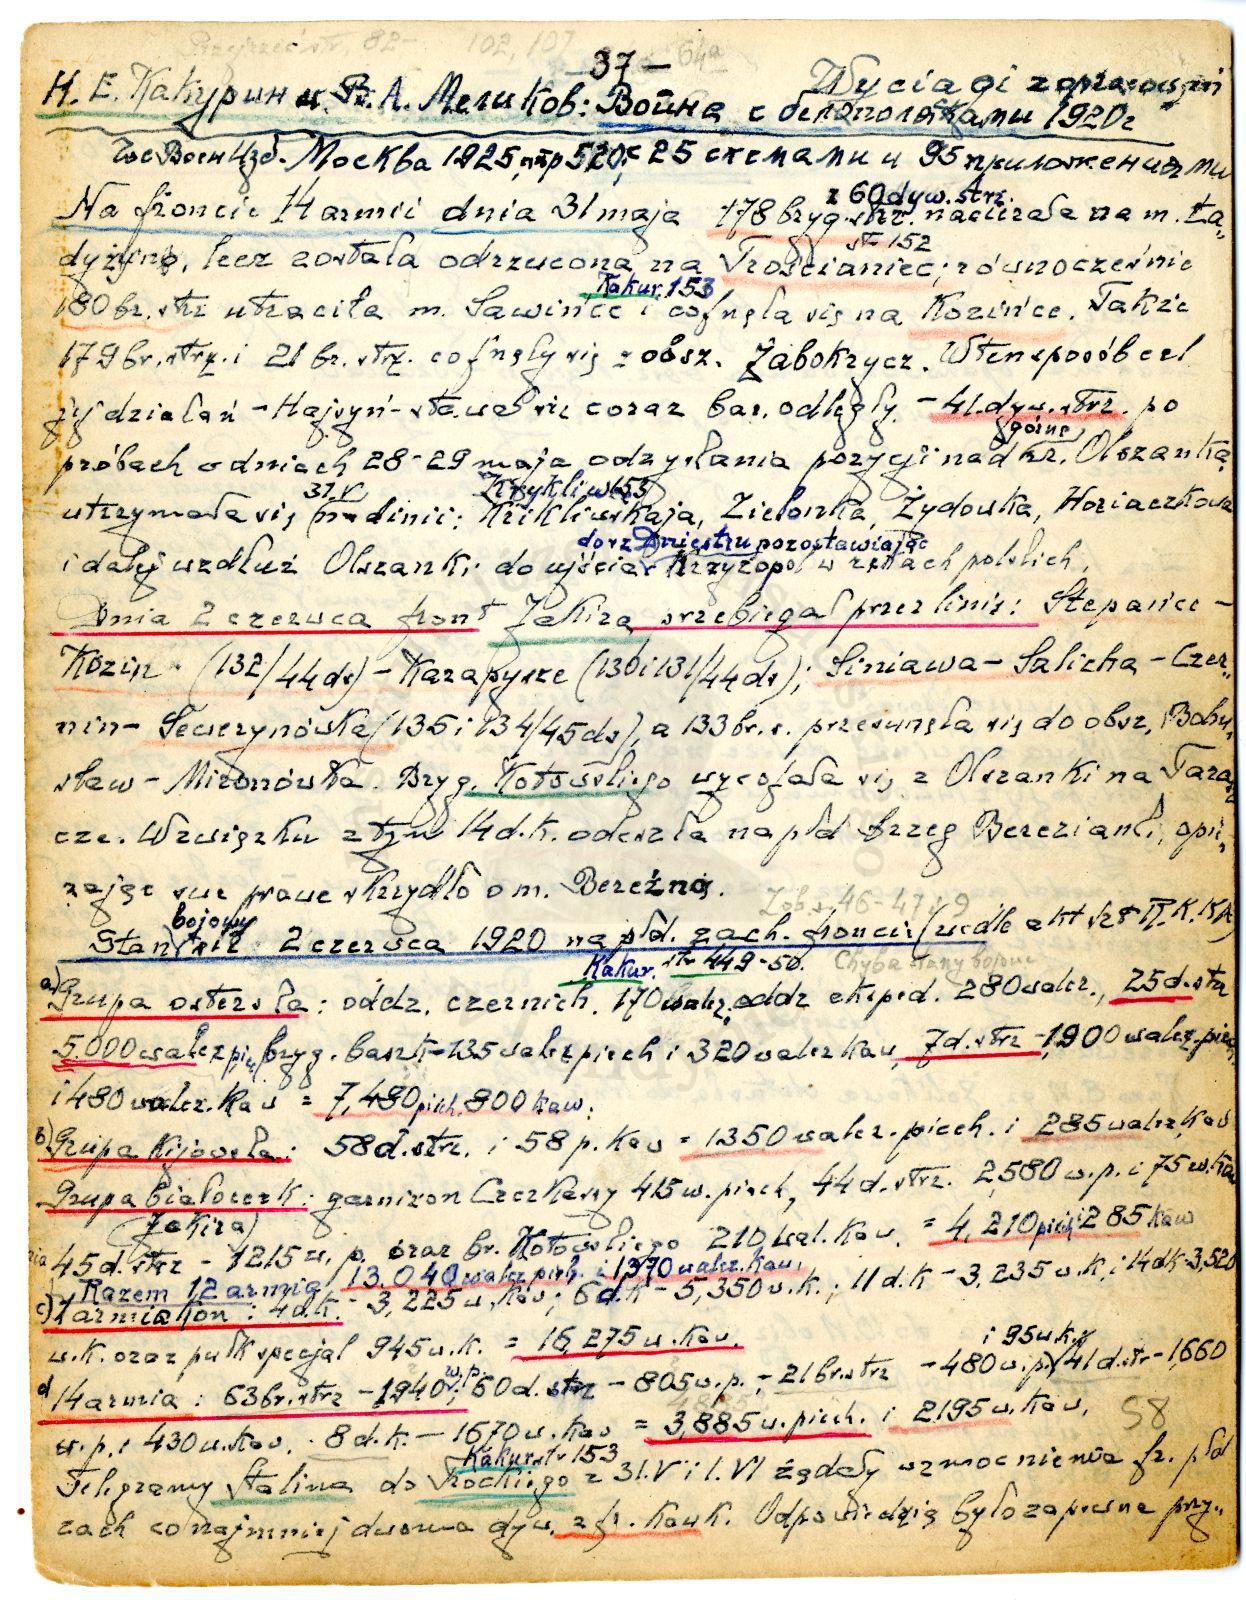 Przejrzeć str. 82- 102, 107 64a
— 37 —
Wyciągi z opracowań
Н. Е. Какурин и В. А. Меликов: Война с белополяками 1920г
Гос Воен Изд. Москва 1925, стр 520, с 25 схемами и 95 приложениями
z 60 dyw. strz.
Na froncie 14 armii dnia 31 maja 178 bryg. strz. nacierała na m. Ła„
str 152
dyżyno, lecz została odrzucona na Trościaniec; równocześnie
Kakur. 153
180 br. strz utraciła m. Sawińce i cofnęła się na Kozińce. Także
179 br. strz. i 21 br. strz. cofnęły się z obsz. Żabokrycz. W ten sposób cel
jej działań – Hajsyń – stawał się coraz bar. odległy. – 41. dyw. strz. po
górną
próbach w dniach 28-29 maja odzyskania pozycji nad rz. Olszanką
31.V Krzykliw 153
utrzymała się na linii: Krikliwskaja, Zielonka, Żydowka, Horiaczkowa
do rz Dniestru pozostawiając
i dalej wzdłuż Olszanki do ujścia Krzyżopol w rękach polskich.
Dnia 2 czerwca front Jakira przebiegał przez linię: Stepańce –
Kozin (132/44ds) – Karapysze (130 i 131/44ds); Siniawa – Salicha – Czer„
nin – Sewerynówka (135 i 134/45ds), a 133 br. s. przesunęła się do obsz. Bohu„
sław – Mironówka. Bryg. Kotowskiego wycofała się z Olszanki na Tarasz
cze. W związku z tym 14 d.k. odeszła na płd brzeg Berezianki, opie„
rając swe prawe skrzydło o m. Bereźna.
Zob. s. 46-47 i 9
bojowy
Stan sił 2 czerwca 1920 na płd. zach. froncie (wedle akt szt R.K.K.A)
Kakur. str 449-50. Chyba stany bojowe
a) Grupa osterska: oddz. czernich. 170 walcz, oddz eksped. 280 walcz., 25 d. strz
5.000 walcz piech, bryg. baszk – 135 walcz piech i 320 walcz kaw, 7 d. strz – 1,900 walcz. piech
i 480 walcz. kaw = 7,480 piech. 800 kaw;
b) Grupa Kijowska: 58 d. strz. i 58 p. kaw = 1350 walcz. piech. i 285 walcz. kaw
Grupa białocerk: garnizon Czerkasy 415 w. piech, 44 d. strz. 2,580 w.p. i 75 w. kaw
(Jakira)
45 d. strz – 1215 w. p. oraz br. Kotowskiego 210 wal. kaw. = 4,210 piech i 285 kaw
Razem 12 armia 13.040 walcz piech. i 1370 walcz. kaw.
c) 1 armia kon: 4 d.k. – 3,225 w. kaw; 6 d.k – 5,350 w.k.; 11 d.k – 3,235 w.k. i 14 dk – 3,520
w.k. oraz pułk specjal 945 w.k. = 16,275 w. kaw.
i 95 w.k.
d 14 armia: 63 br. strz – 1940 w.p. 60 d. strz – 805 w.p. – 21 br. strz – 480 w.p. 41 d. str – 1,660
w.p. i 430 w. kaw. 8 d.k. – 1670 w. kaw = 3,885 w. piech. i 2195 w. kaw. 58
Kakur str 153
Telegramy Stalina do Trockiego z 31.V i 1.VI żądały wzmocnienia fr. płd
zach co najmniej dwoma dyw. z fr. kauk. Odpowiedzią było zapewne przy„